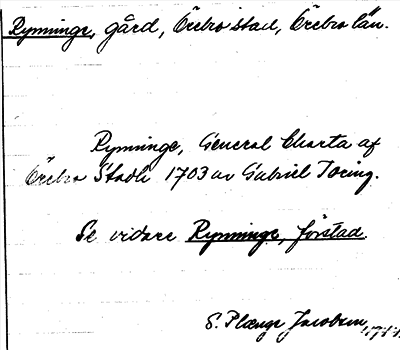 Rynninge, gård, Örebro stad, Örebro län.
Rynninge, General Charta af
Örebro Stadh 1703 av Gabriel Toring.
Se vidare Rynninge, förstad.
S. Plænge Jacobson